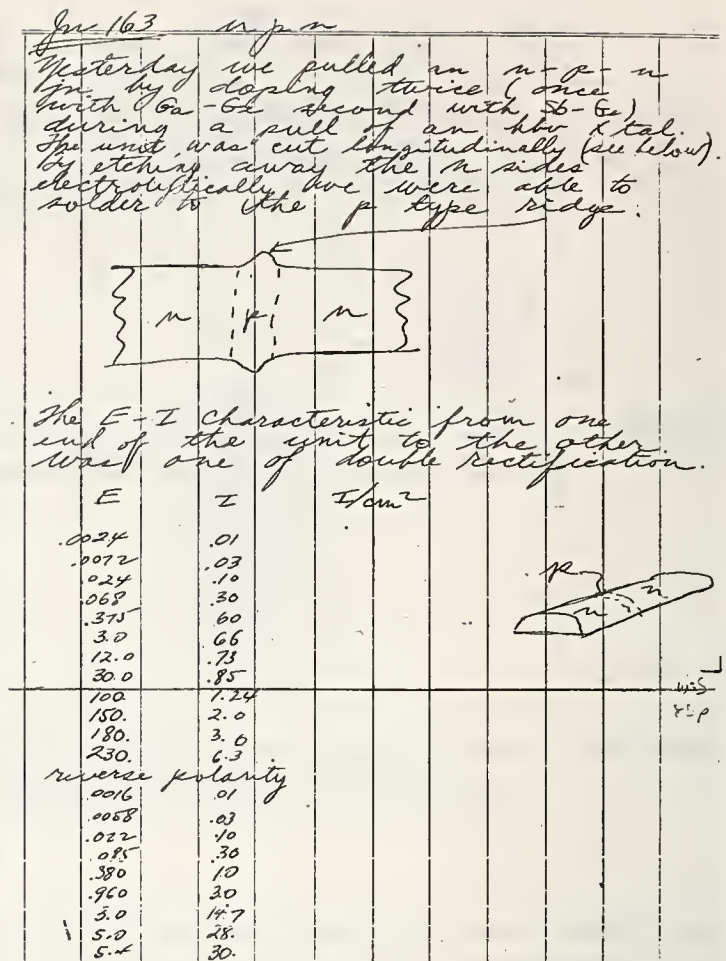 Jn 163 n p n
Yesterday we pulled an n-p-n
Jn by doping twice (once
with Ga-Ge second with Sb-Ge)
during a pull of an hbv Xtal.
The unit was cut longitudinally (see below).
By etching away the n sides
electrolytically we were able to
solder to the p type ridge.
n p n
The E-I characteristic from one
end of the unit to the other
was one of double rectification.
E I I/cm2
.0024 .01
.0072 .03
.024 .10
.068 .30
.375 .60
3.0 .66
12.0 .73
30.0 .85
p
n n
100. 1.24
150. 2.0
180. 3.0
230. 6.3
reverse polarity
.0016 .01
.0058 .03
.022 .10
.085 .30
.380 1.0
.960 3.0
3.0 14.7
5.0 28.
5.4 30.